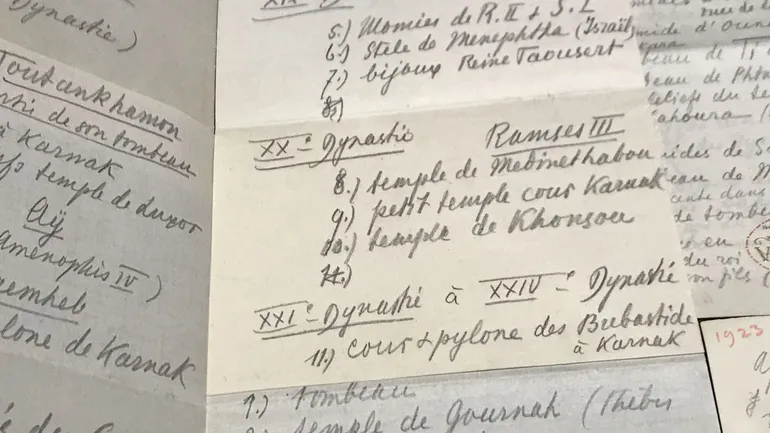 Dynastie)
Toutankhamon
de son tombeau
à Karnak
temple de Luxor
Aÿ
amenophis IV)
lone de Karnak
5.) Momies de R. II & S. I
6.) Stèle de Menephtha (Israël)
7.) bijoux Reine Taousert
8.)
XXe Dynastie Ramses III
8.) temple de Medinethabou
9.) petit temple cour Karnak
10.) temple de Khonsou
11.)
XXIe Dynastie à XXIVe Dynastie
11.) cour & pylone des Bubastide
à Karnak
1.) tombeau
temple de Gournah (Thèbes
mide d'Oun
eau de
de tombe
du roi
son fils
1923